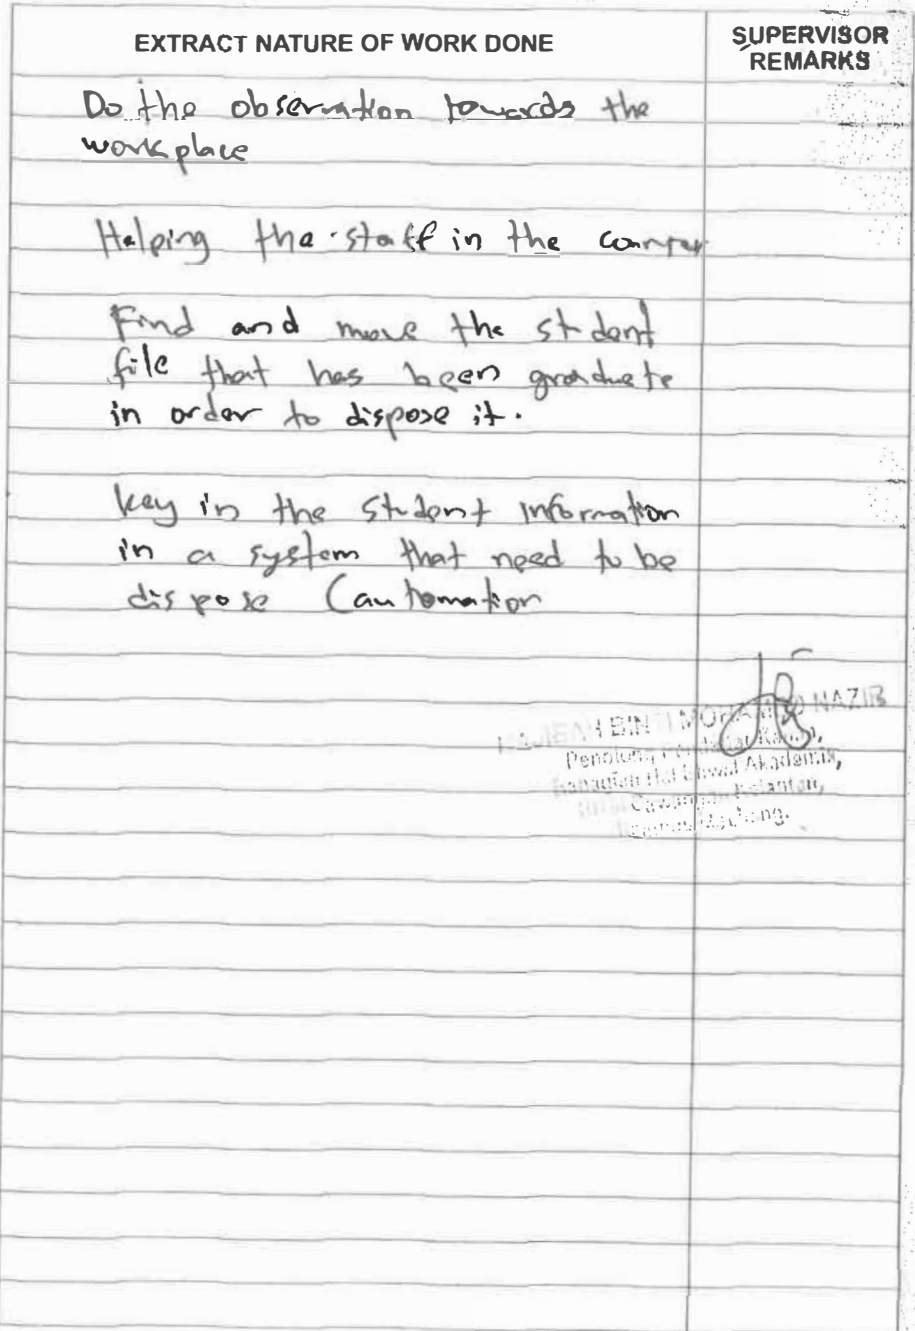 EXTRACT NATURE OF WORK DONE
SUPERVISOR
REMARKS
Do the observation towards the
workplace
Helping the staff in the counter
Find and move the student
file that has been graduate
in order to dispose it.
key in the student information
in a system that need to be
dispose (automation
BINTI MOHAMED NAZIB
Penolong Pendaftar Kanan,
Bahagian Hal Ehwal Akademik,
Cawangan Kelantan,
Machang.